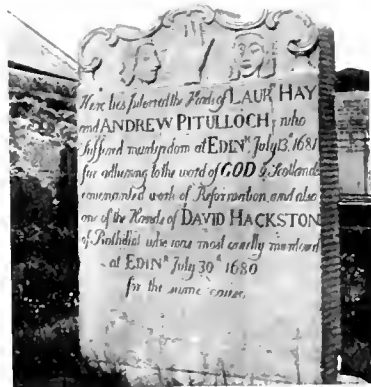 Here lies Interred the Heads of LAURᶜᵉ HAY
and ANDREW PITULLOCH, who
suffered martyrdom at EDINʳ July 13ᵗʰ 1681
for adhering to the word of GOD & Scotlands
covenanted work of Reformation, and also
one of the Hands of DAVID HACKSTON
of Rathillit who was most cruelly murdered
at EDINʳ July 30ᵗʰ 1680
for the same cause.